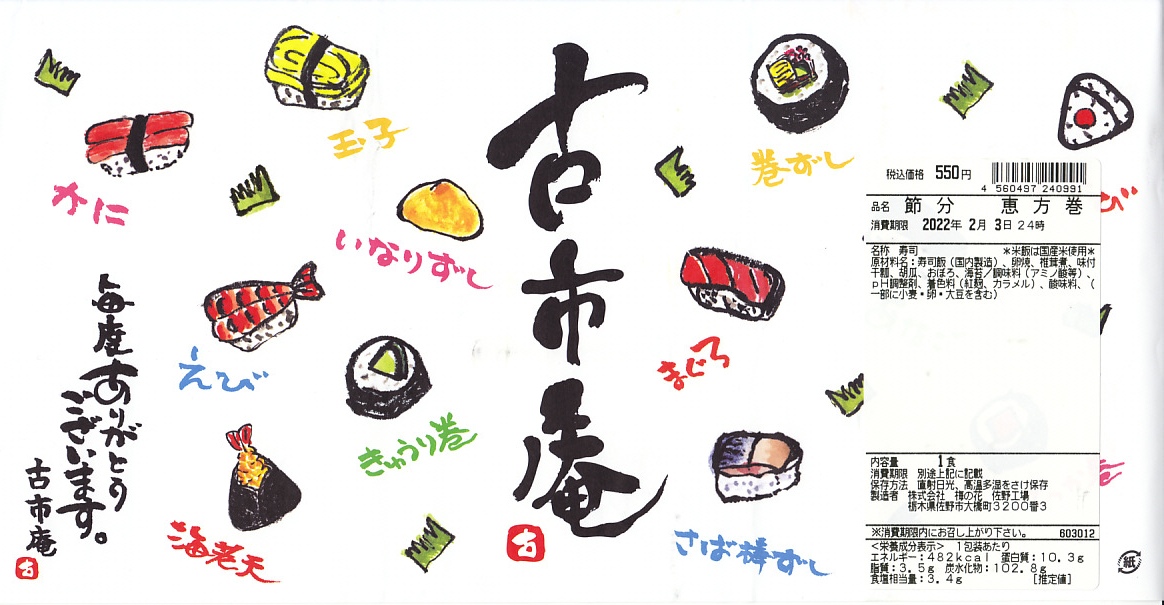 古市庵
古
玉子
かに
いなりずし
えび
きゅうり巻
海老天
巻ずし
まぐろ
さば棒ずし
毎度ありがとう
ございます。
古市庵
古
び
税込価格 550円
4 560497 240991
品名 節分 恵方巻
消費期限 2022年 2月 3日 24時
名称 寿司 *米飯は国産米使用*
原材料名:寿司飯(国内製造)、卵焼、椎茸煮、味付
干瓢、胡瓜、おぼろ、海苔/調味料(アミノ酸等)、
pH調整剤、着色料(紅麹、カラメル)、酸味料、(
一部に小麦・卵・大豆を含む)
内容量 1食
消費期限 別途上記に記載
保存方法 直射日光、高温多湿をさけ保存
製造者 株式会社 梅の花 佐野工場
栃木県佐野市大橋町3200番3
※消費期限内にお召し上がり下さい。 603012
<栄養成分表示> 1包装あたり
エネルギー:482kcal 蛋白質:10.3g
脂質:3.5g 炭水化物:102.8g
食塩相当量:3.4g [推定値]
紙